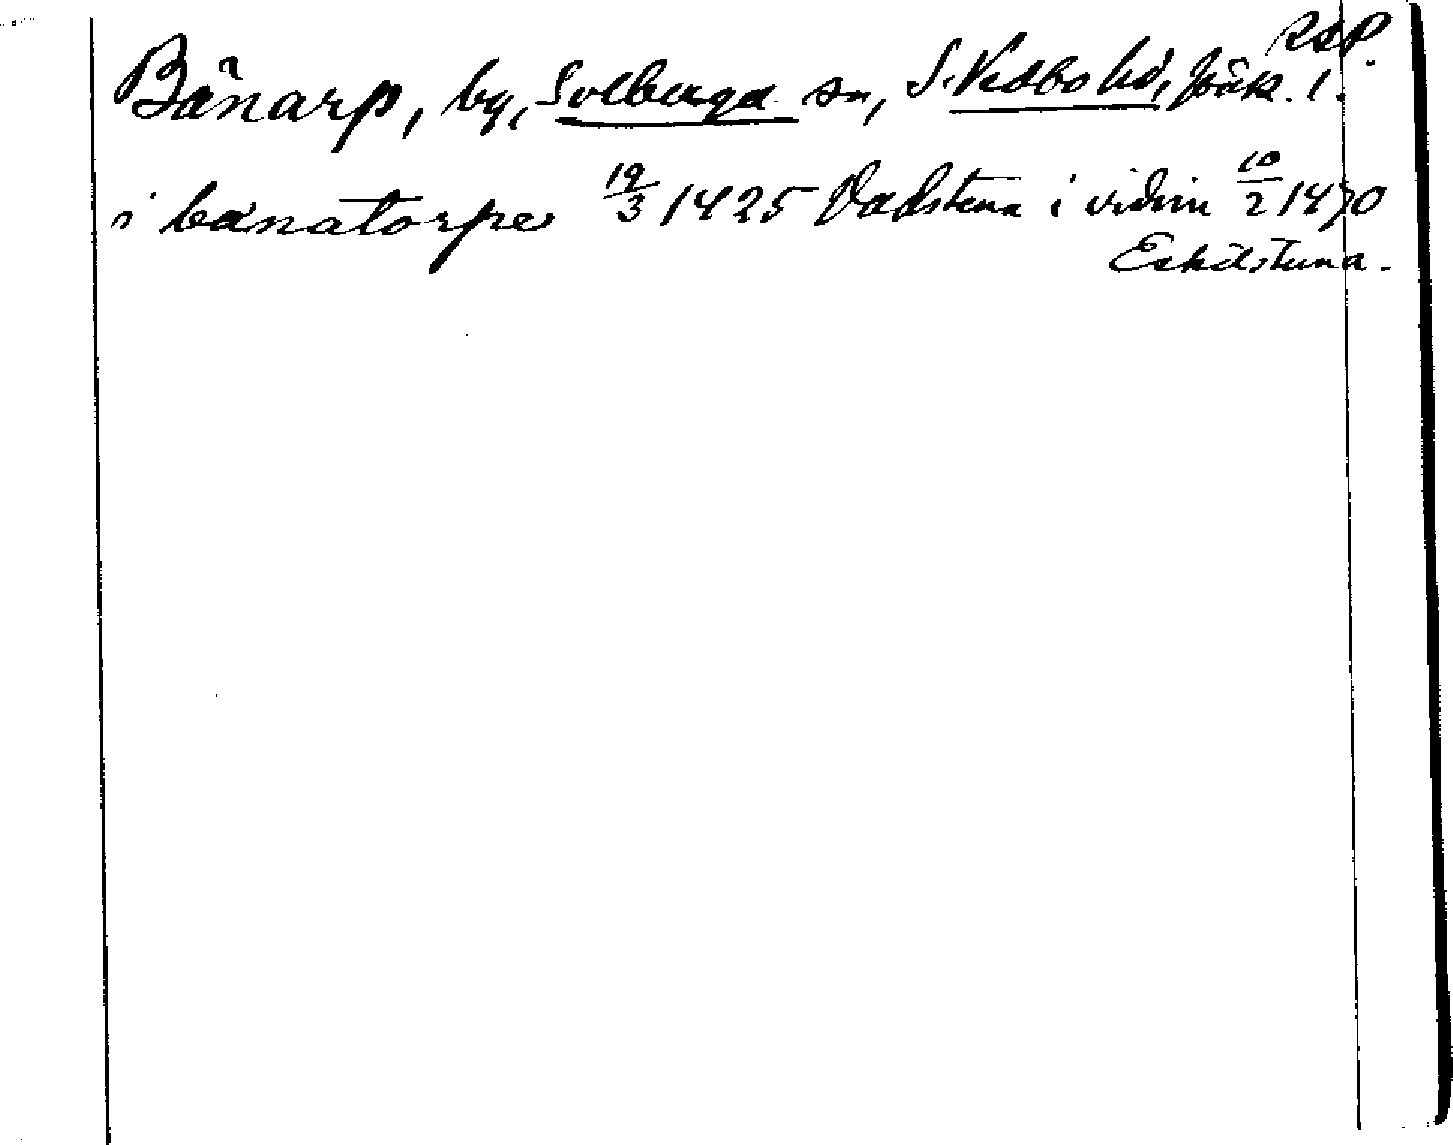 RAP.
Bänarp, by, Solberga sn, S. Vedbo hd, Jönk. l.
i bænatorpe 19/3 1425 Vadstena i vidim 10/2 1470
Eskilstuna.